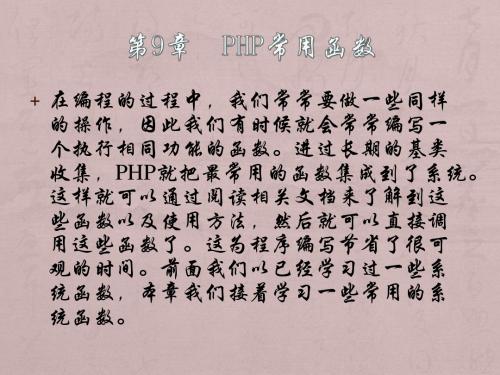 第9章 PHP常用函数
+ 在编程的过程中，我们常常要做一些同样
的操作，因此我们有时候就会常常编写一
个执行相同功能的函数。进过长期的基类
收集，PHP就把最常用的函数集成到了系统。
这样就可以通过阅读相关文档来了解到这
些函数以及使用方法，然后就可以直接调
用这些函数了。这为程序编写节省了很可
观的时间。前面我们以已经学习过一些系
统函数，本章我们接着学习一些常用的系
统函数。